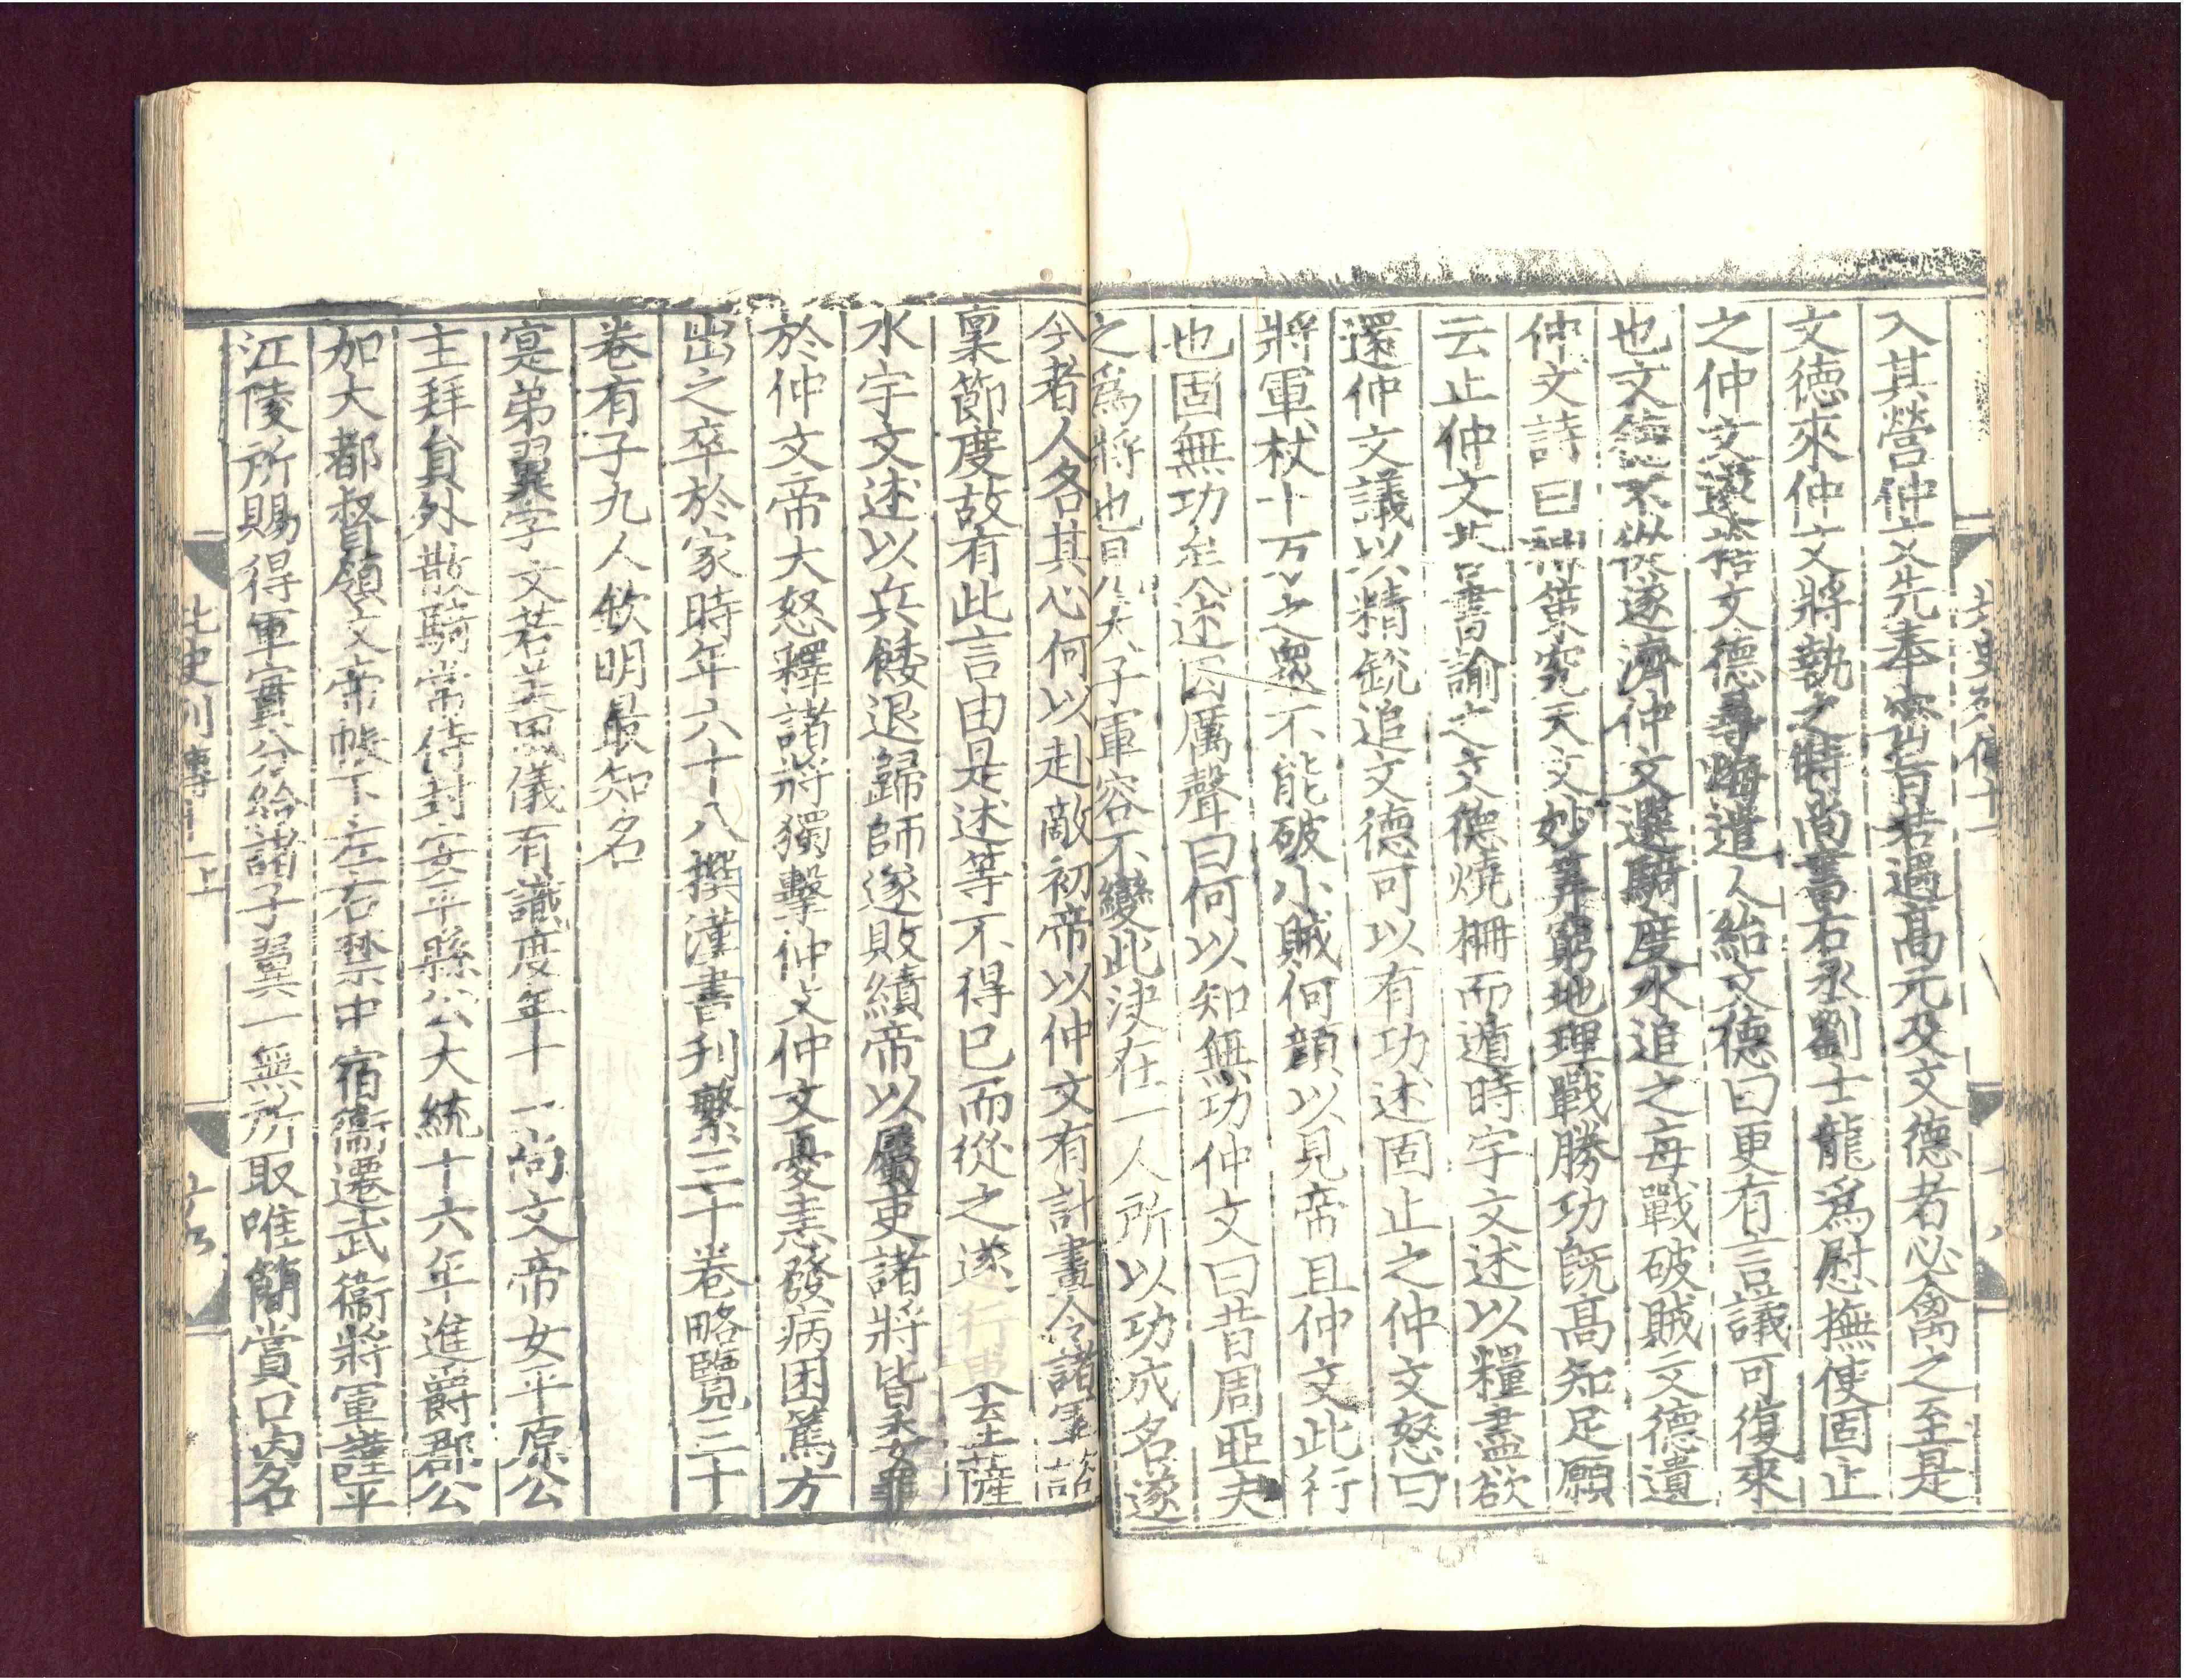 入其營仲文先奉密旨若遇高元及文德者必禽之至是
文德來仲文將執之時尚書右丞劉士龍爲慰撫使固止
之仲文遂捨文德尋悔遣人紿文德曰更有言議可復來
也文德不從遂濟仲文選騎度水追之每戰破賊文德遺
仲文詩曰神策究天文妙筭窮地理戰勝功旣高知足願
云止仲文荅書諭之文德燒柵而遁時宇文述以糧盡欲
還仲文議以精銳追文德可以有功述固止之仲文怒曰
將軍杖十万之眾不能破小賊何顔以見帝且仲文此行
也固無功矣述因厲聲曰何以知無功仲文曰昔周亞夫
之爲將也見天子軍容不變此決在一人所以功成名遂
今者人各其心何以赴敵初帝以仲文有計畫令諸軍諮
稟節度故有此言由是述等不得已而從之遂行東至薩
水宇文述以兵餧退歸師遂敗績帝以屬吏諸將皆委罪
於仲文帝大怒釋諸將獨擊仲文仲文憂恚發病困篤方
出之卒於家時年六十八撰漢書刋繁三十卷略覽三十
卷有子九人欽明最知名
寔弟翼字文若美風儀有識度年十一尚文帝女平原公
主拜貟外散騎常侍封安平縣公大統十六年進爵郡公
加大都督領文帝帳下左右禁中宿衞遷武衞將軍謹平
江陵所賜得軍實分給諸子翼一無所取唯簡賞口內名
北史列傳十一上